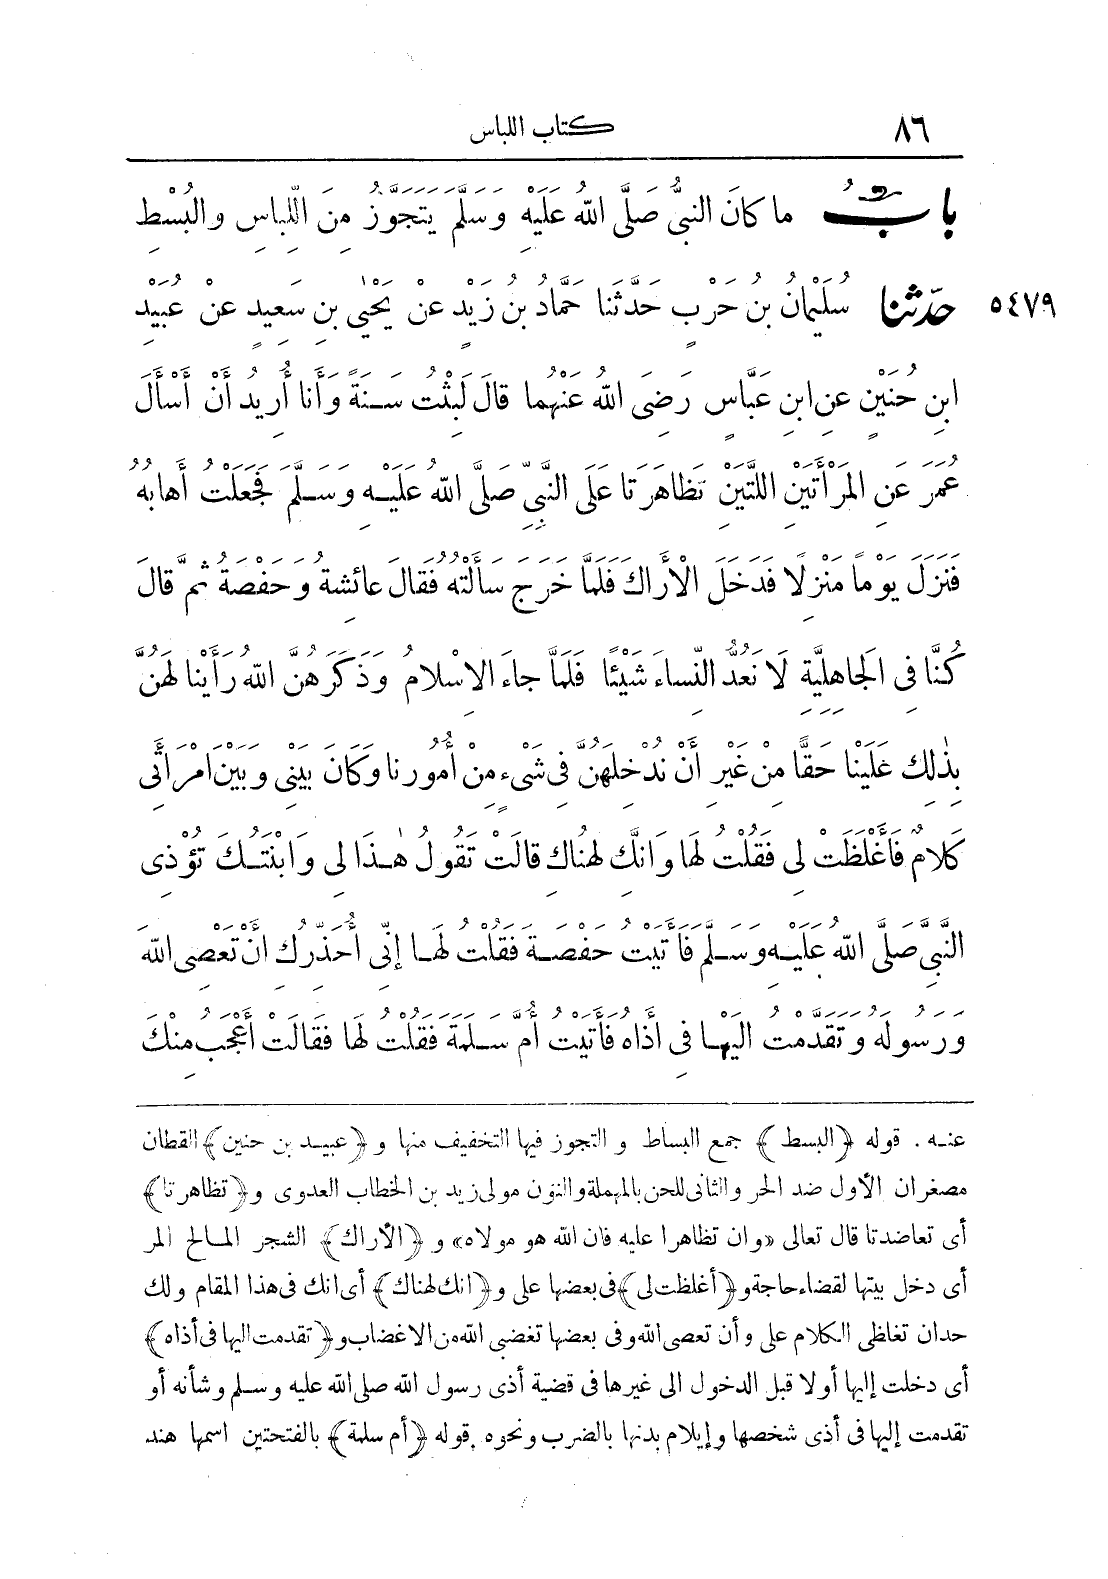 ٨٦
كتاب اللباس
بابُ ما كَانَ النبىُّ صَلَّى اللهُ عَلَيْهِ وَسَلَّمَ يَتَجَوَّزُ مِنَ اللِّبَاسِ والبُسْطِ
٥٤٧٩ حدّثنا سُلَيْمانُ بنُ حَرْبٍ حَدَّثَنا حَمَّادُ بنُ زَيْدٍ عنْ يَحْيَى بنِ سَعِيدٍ عنْ عُبَيْدِ
ابنِ حُنَيْنٍ عنِ ابنِ عَبَّاسٍ رَضِىَ اللهُ عَنْهُما قالَ لَبِثْتُ سَنَةً وَأَنا أُرِيدُ أنْ أسْأَلَ
عُمَرَ عَنِ المَرْأَتَيْنِ اللَّتَيْنِ تَظاهَرَتا عَلَى النَّبِىِّ صَلَّى اللهُ عَلَيْهِ وَسَلَّمَ فَجَعَلْتُ أَهابُهُ
فَنَزَلَ يَوْماً مَنْزِلًا فَدَخَلَ الْأَراكَ فَلَمَّا خَرَجَ سَأَلْتُهُ فَقالَ عائِشَةُ وَحَفْصَةُ ثمَّ قالَ
كُنَّا فِى الجَاهِلِيَّةِ لَا نَعُدُّ النِّساءَ شَيْئًا فَلَمَّا جاءَ الإِسْلامُ وَذَكَرَهُنَّ اللهُ رَأَيْنا لَهُنَّ
بِذٰلِكَ عَلَيْنا حَقًّا مِنْ غَيْرِ أَنْ نُدْخِلَهُنَّ فى شَىْءٍ مِنْ أُمُورِنا وكَانَ بَيْنِى وبَيْنَ امْرَأَتِى
كَلامٌ فَأَغْلَظَتْ لِى فَقُلْتُ لَها وَانَّكِ لهُناكِ قالَتْ تَقُولُ هٰذَا لِى وَابْنَتُكَ تُؤْذِى
النَّبِىَّ صَلَّى اللهُ عَلَيْهِ وَسَلَّمَ فَأَتَيْتُ حَفْصَةَ فَقُلْتُ لَهَا إِنِّى أُحَذِّرُكِ أَنْ تَعْصِى اللهَ
وَرَسُولَهُ وَتَقَدَّمْتُ الَيْهَا فِى أذَاهُ فَأَتَيْتُ أُمَّ سَلَمَةَ فَقُلْتُ لَها فَقَالَتْ أَعْجَبُ مِنْكَ
عنه . قوله ﴿البسط﴾ جمع البساط و التجوز فيها التخفيف منها و ﴿عبيد بن حنين﴾ القطان
مصغران الأول ضد الحر والثانى للحن بالمهملة والنون مولى زيد بن الخطاب العدوى و﴿تظاهرتا﴾
أى تعاضدتا قال تعالى «وان تظاهرا عليه فان الله هو مولاه» و ﴿الأراك﴾ الشجر المالح المر
أى دخل بيتها لقضاء حاجة و﴿أغلظت لى﴾ فى بعضها على و﴿انك لهناك﴾ أى انك فى هذا المقام ولك
حدان تغاظى الكلام على وأن تعصى الله وفى بعضها تغضبى الله من الاغضاب و﴿تقدمت اليها فى أذاه﴾
أى دخلت إليها أولا قبل الدخول الى غيرها فى قضية أذى رسول الله صلى الله عليه وسلم وشأنه أو
تقدمت إليها فى أذى شخصها وإيلام بدنها بالضرب ونحوه . قوله ﴿أم سلمة﴾ بالفتحتين اسمها هند